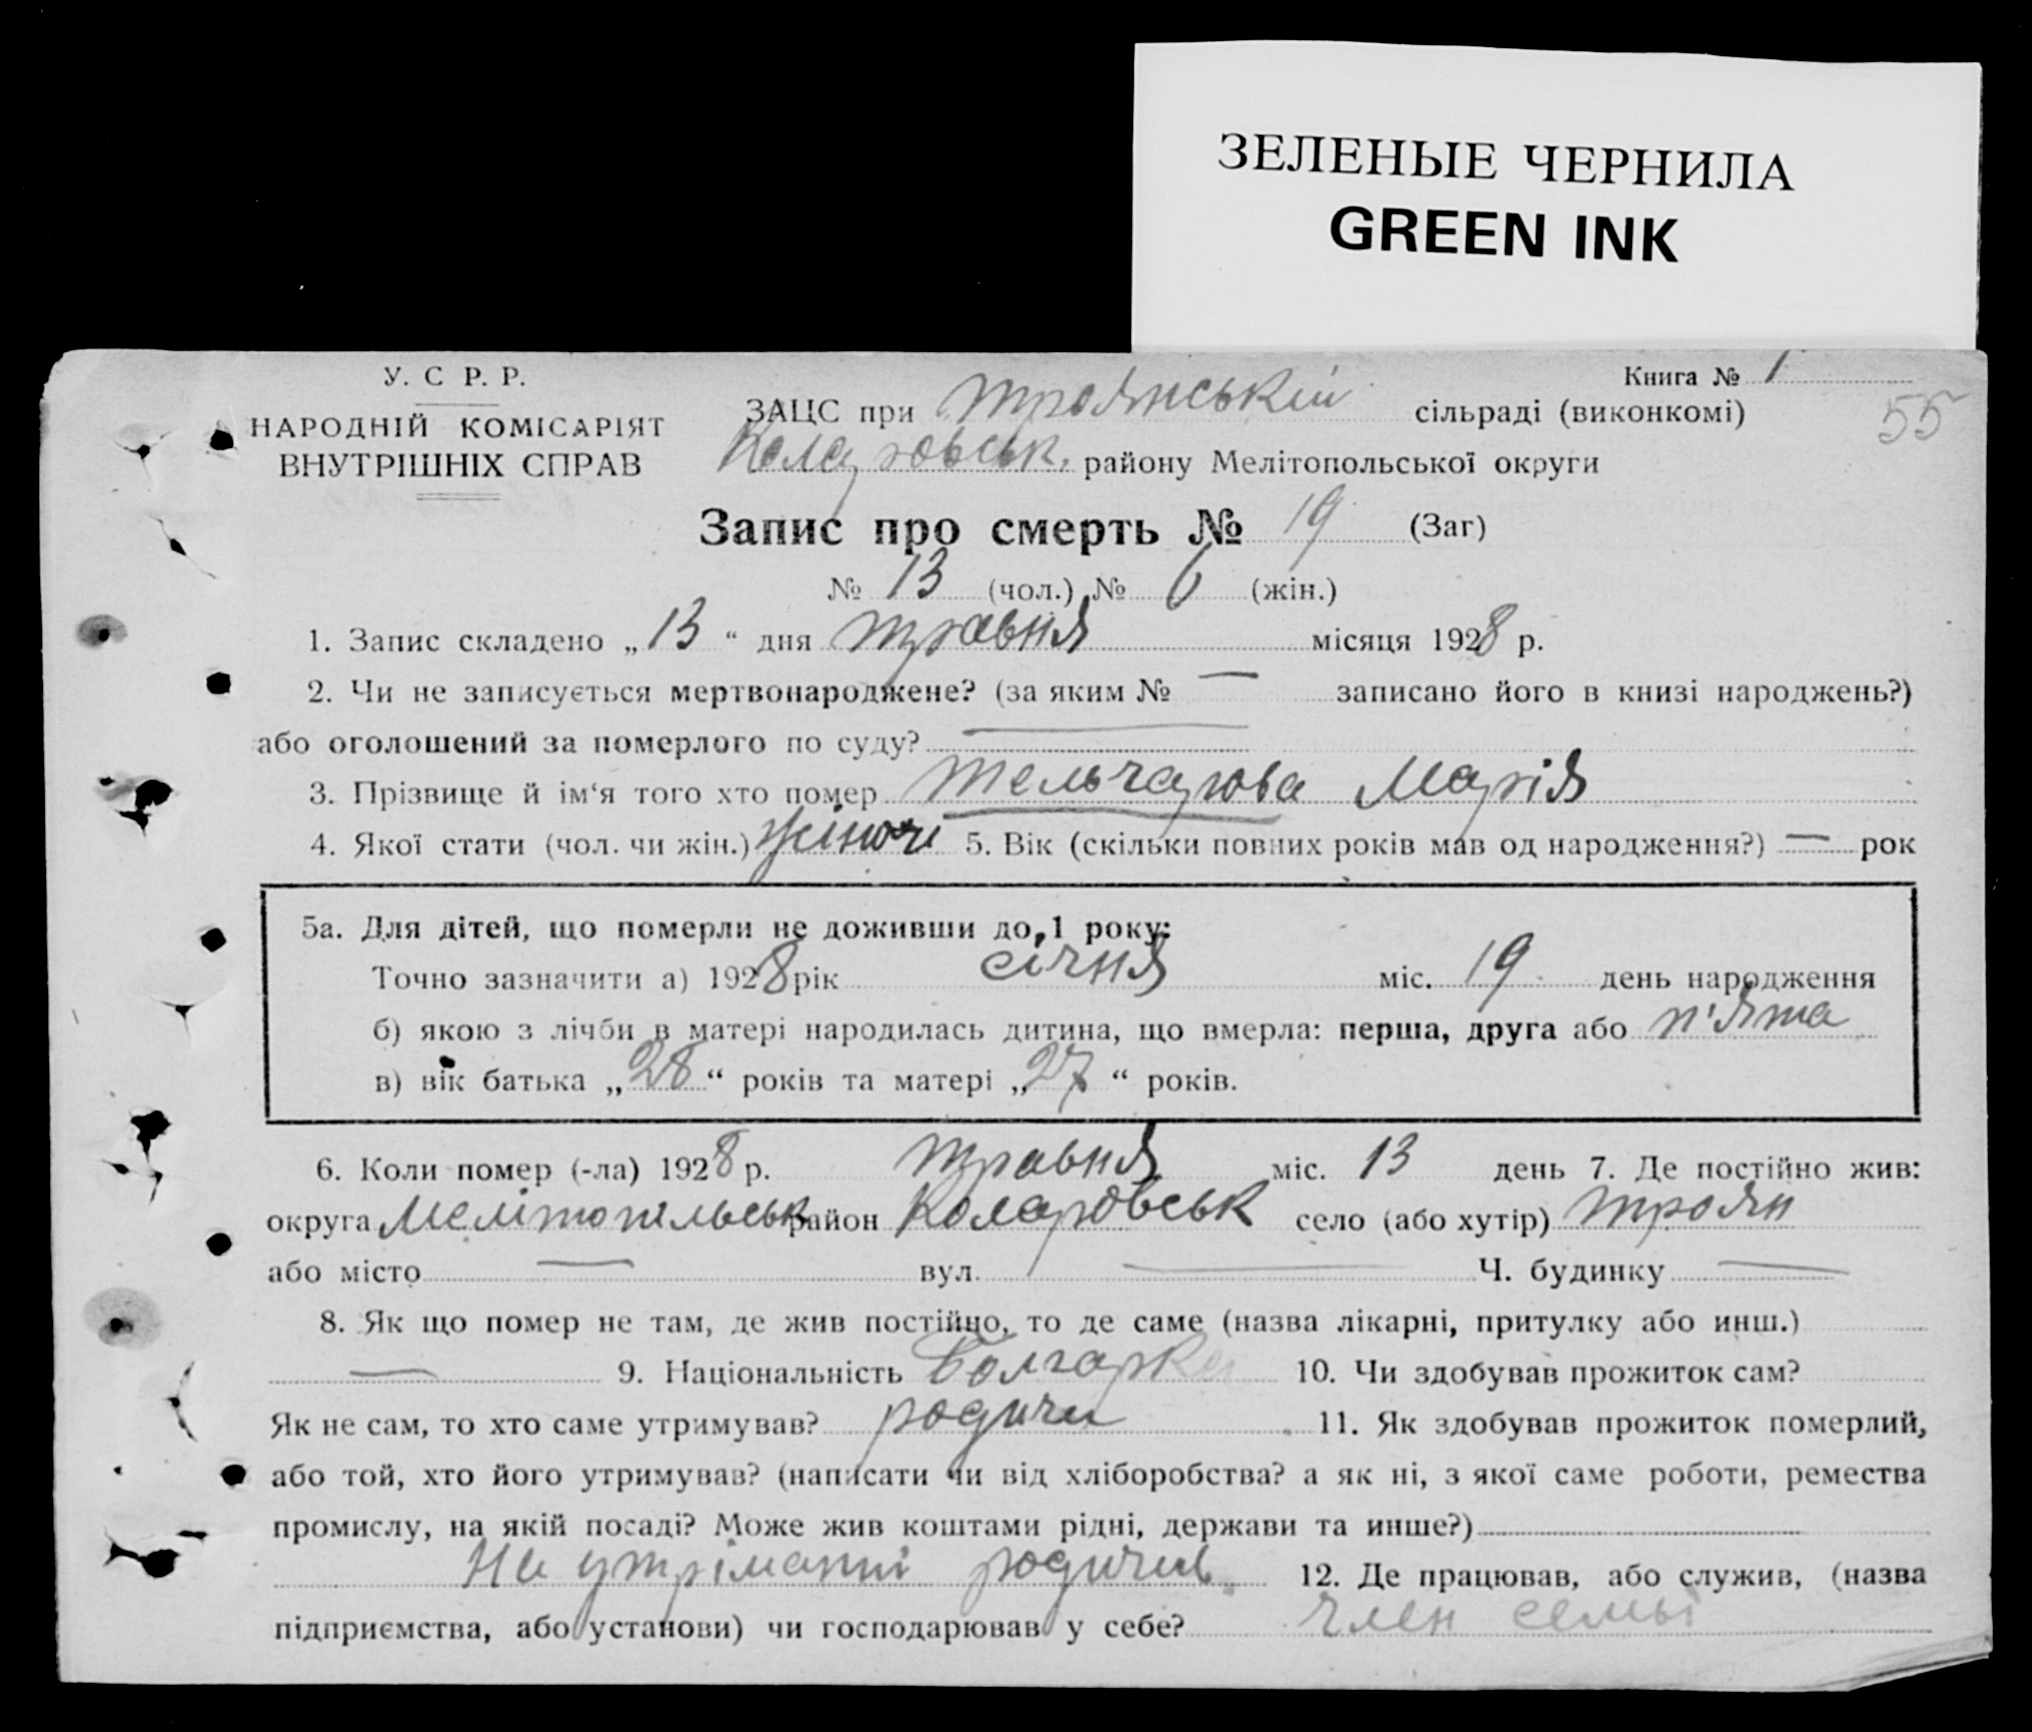 ЗЕЛЕНЫЕ ЧЕРНИЛА
GREEN INK
У. С Р. Р.
НАРОДНІЙ КОМІСАРІЯТ
ВНУТРІШНІХ СПРАВ
Книга № 1
55
ЗАЦС при Троянській сільраді (виконкомі)
Коларовськ. району Мелітопольської округи
Запис про смерть № 19 (Заг)
№ 13 (чол.) № 6 (жін.)
1. Запис складено „13“ дня травня місяця 1928 р.
2. Чи не записується мертвонароджене? (за яким № — записано його в книзі народжень?)
або оголошений за померлого по суду? —
3. Прізвище й ім‘я того хто помер Тельчарова Марія
4. Якої стати (чол. чи жін.) жіночі 5. Вік (скільки повних років мав од народження?) — рок
5а. Для дітей, що померли не доживши до 1 року:
Точно зазначити а) 1928 рік січня міс. 19 день народження
б) якою з лічби в матері народилась дитина, що вмерла: перша, друга або п'ята
в) вік батька „28“ років та матері „27“ років.
6. Коли помер (-ла) 1928 р. травня міс. 13 день 7. Де постійно жив:
округа Мелітопільськ район Коларовськ село (або хутір) Троян
або місто — вул. — Ч. будинку —
8. Як що помер не там, де жив постійно, то де саме (назва лікарні, притулку або инш.)
— 9. Національність Болгарка 10. Чи здобував прожиток сам?
Як не сам, то хто саме утримував? родичи 11. Як здобував прожиток померлий,
або той, хто його утримував? (написати чи від хліборобства? а як ні, з якої саме роботи, ремества
промислу, на якій посаді? Може жив коштами рідні, держави та инше?)
На утріманні родичів. 12. Де працював, або служив, (назва
підприємства, або установи) чи господарював у себе? член семьі